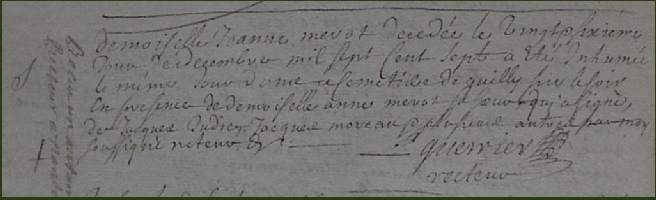 demoiselle Joanne merot decedée le Vingtsixieme
Jour de decembre mil sept Cent sept a été Inhumée
le même Jour dans le semetiere de guilly sur le soir
En presence de demoiselle anne merot sa sœur qui a signé,
de Jacques Judic, Jacques moreau & plusieurs autres par moy
soussigné recteur &c
guerrier
recteur